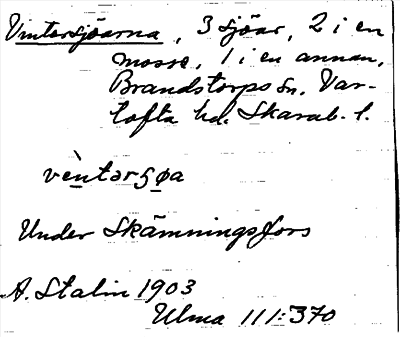 Vintersjöarna, 3 sjöar, 2 i en
mosse, 1 i en annan.
Brandstorps sn. Var-
tofta hd. Skarab. l.
vèntərʂøa
Under Skämningsfors
A. Stalin 1903
Ulma 111:370